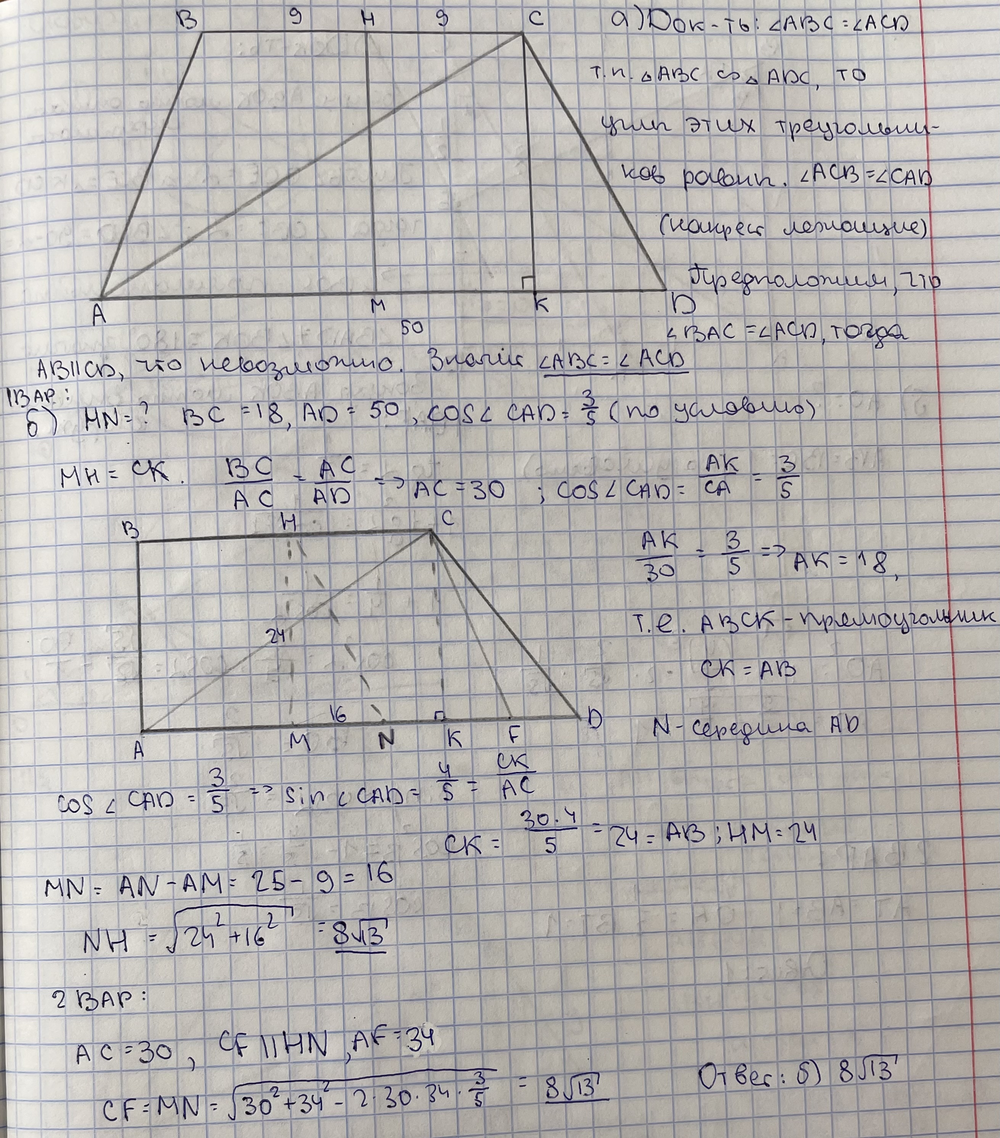 B 9 H 9 C
A M K D
50
а) Док-ть: ∠ABC = ∠ACD
т.п. △ABC ∾ △ADC, то
угли этих треугольни-
ков равны. ∠ACB = ∠CAD
(накрест лежащие)
Предположим, что
∠BAC = ∠ACD, тогда
AB||CD, что невозможно. Значит ∠ABC = ∠ACD
1 ВАР:
б) HN = ? BC = 18, AD = 50, cos∠CAD = 3/5 (по условию)
MH = CK. BC/AC = AC/AD => AC = 30 ; cos∠CAD = AK/CA = 3/5
B H C
24
16
A M N K F D
AK/30 = 3/5 => AK = 18,
т.е. ABCK - прямоугольник
CK = AB
N - середина AD
cos∠CAD = 3/5 => sin∠CAD = 4/5 = CK/AC
CK = 30·4/5 = 24 = AB ; HM = 24
MN = AN - AM = 25 - 9 = 16
NH = √(24² + 16²) = 8√13
2 ВАР:
AC = 30, CF || HN, AF = 34
CF = MN = √(30² + 34² - 2·30·34·3/5) = 8√13
Ответ: б) 8√13